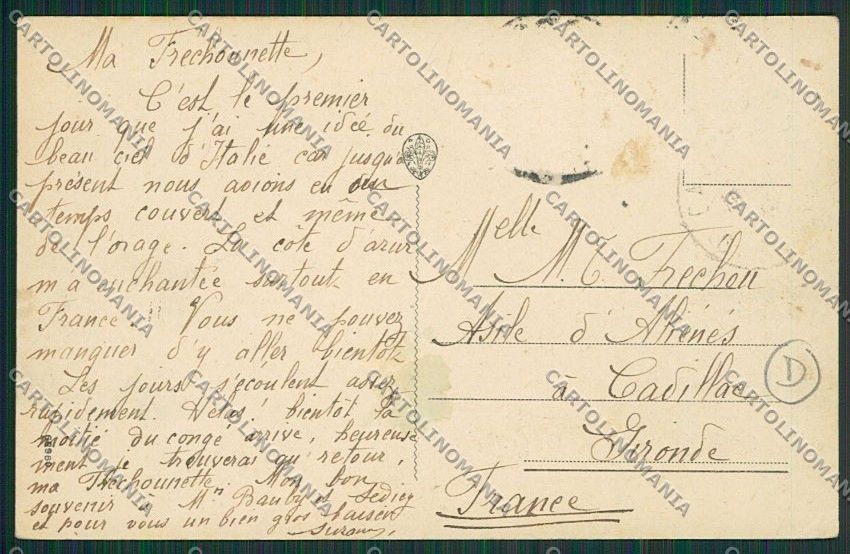 Ma Frechounette,
C'est le premier
jour que j'ai une idée du
beau ciel d'Italie car jusqu'à
présent nous avions eu un
temps couvert et même
de l'orage. La côte d'azur
m'a enchantée surtout en
France. Vous ne pouvez
manquer d'y aller bientôt
Les jours s'écoulent assez
rapidement. Hélas! bientôt la
moitié du congé arrive, heureuse
ment je trouverai au retour,
ma Frechounette. Mon bon
souvenir à Mm Bauby et
et pour vous un bien gros baiser
Melle
M. T. Fréchou
Asile d'Aliénés
à Cadillac
Gironde
France
D
CARTOLINOMANIA